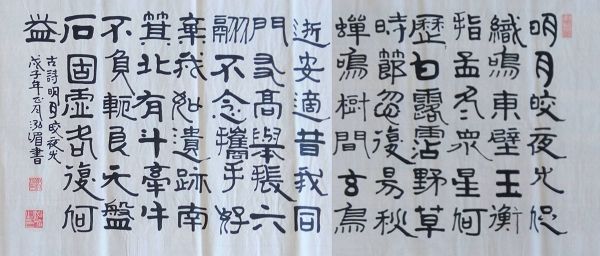 明月皎夜光促
織鳴東壁玉衡
指孟冬眾星何
歷白露沾野草
時節忽復易秋
蟬鳴樹間玄鳥
逝安適昔我同
門友高舉振六
翮不念攜手好
棄我如遺跡南
箕北有斗牽牛
不負軛良无盤
石固虛名復何
益
古詩明月皎夜光
戊子年正月泓眉書